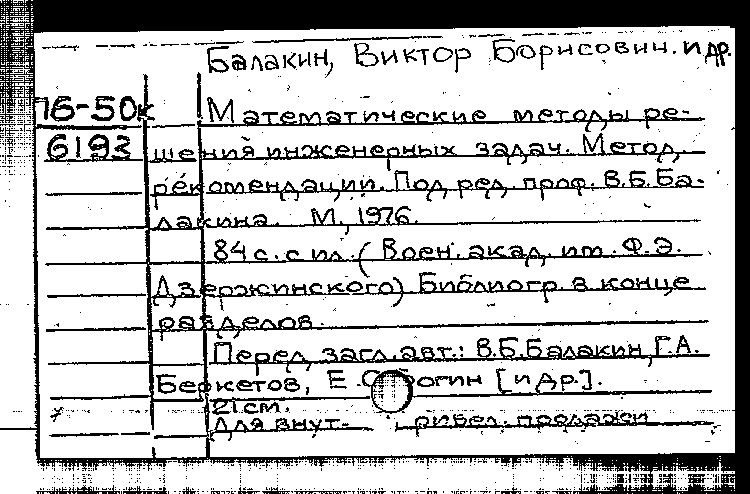 Балакин, Виктор Борисович. и др.
76-50к Математические методы ре-
6193 шения инженерных задач. Метод.
рекомендации. Под ред. проф. В.Б. Ба-
лакина. М., 1976.
84 с. с ил. (Воен. акад. им. Ф.Э.
Дзержинского) Библиогр. в конце
разделов.
Перед загл. авт.: В.Б. Балакин, Г.А.
Беркетов, Е. [и др.].
21 см.
Для внут- продажи